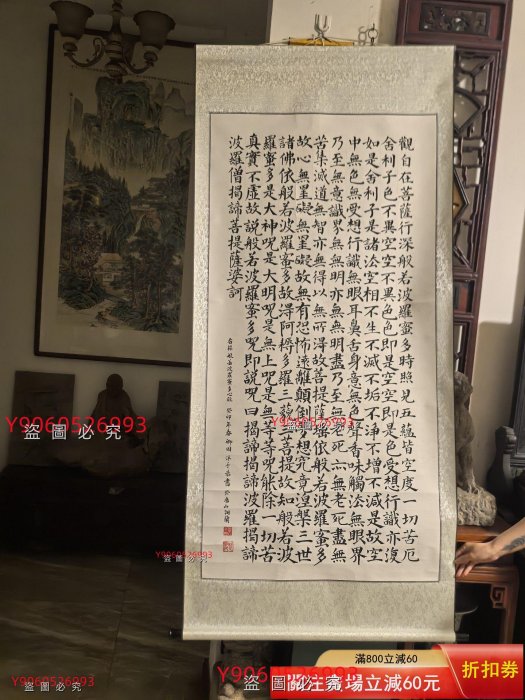 觀自在菩薩行深般若波羅蜜多時照見五蘊皆空度一切苦厄
舍利子色不異空空不異色色即是空空即是色受想行識亦復
如是舍利子是諸法空相不生不滅不垢不淨不增不減是故空
中無色無受想行識無眼耳鼻舌身意無色聲香味觸法無眼界
乃至無意識界無無明亦無無明盡乃至無老死亦無老死盡無
苦集滅道無智亦無得以無所得故菩提薩埵依般若波羅蜜多
故心無罣礙無罣礙故無有恐怖遠離顛倒夢想究竟涅槃三世
諸佛依般若波羅蜜多故得阿耨多羅三藐三菩提故知般若波
羅蜜多是大神呪是大明呪是無上呪是無等等呪能除一切苦
真實不虛故說般若波羅蜜多呪即説呪曰揭諦揭諦波羅揭諦
波羅僧揭諦菩提薩婆訶
般若波羅蜜多心經 癸卯年春
Y9060526993
盜圖必究
Y9060526993
盜圖必究
Y9060526993
盜圖必究
Y9060526993
盜圖必究
Y9060526993
盜圖必究
滿800立減60
關注賣場立減60元
折扣券